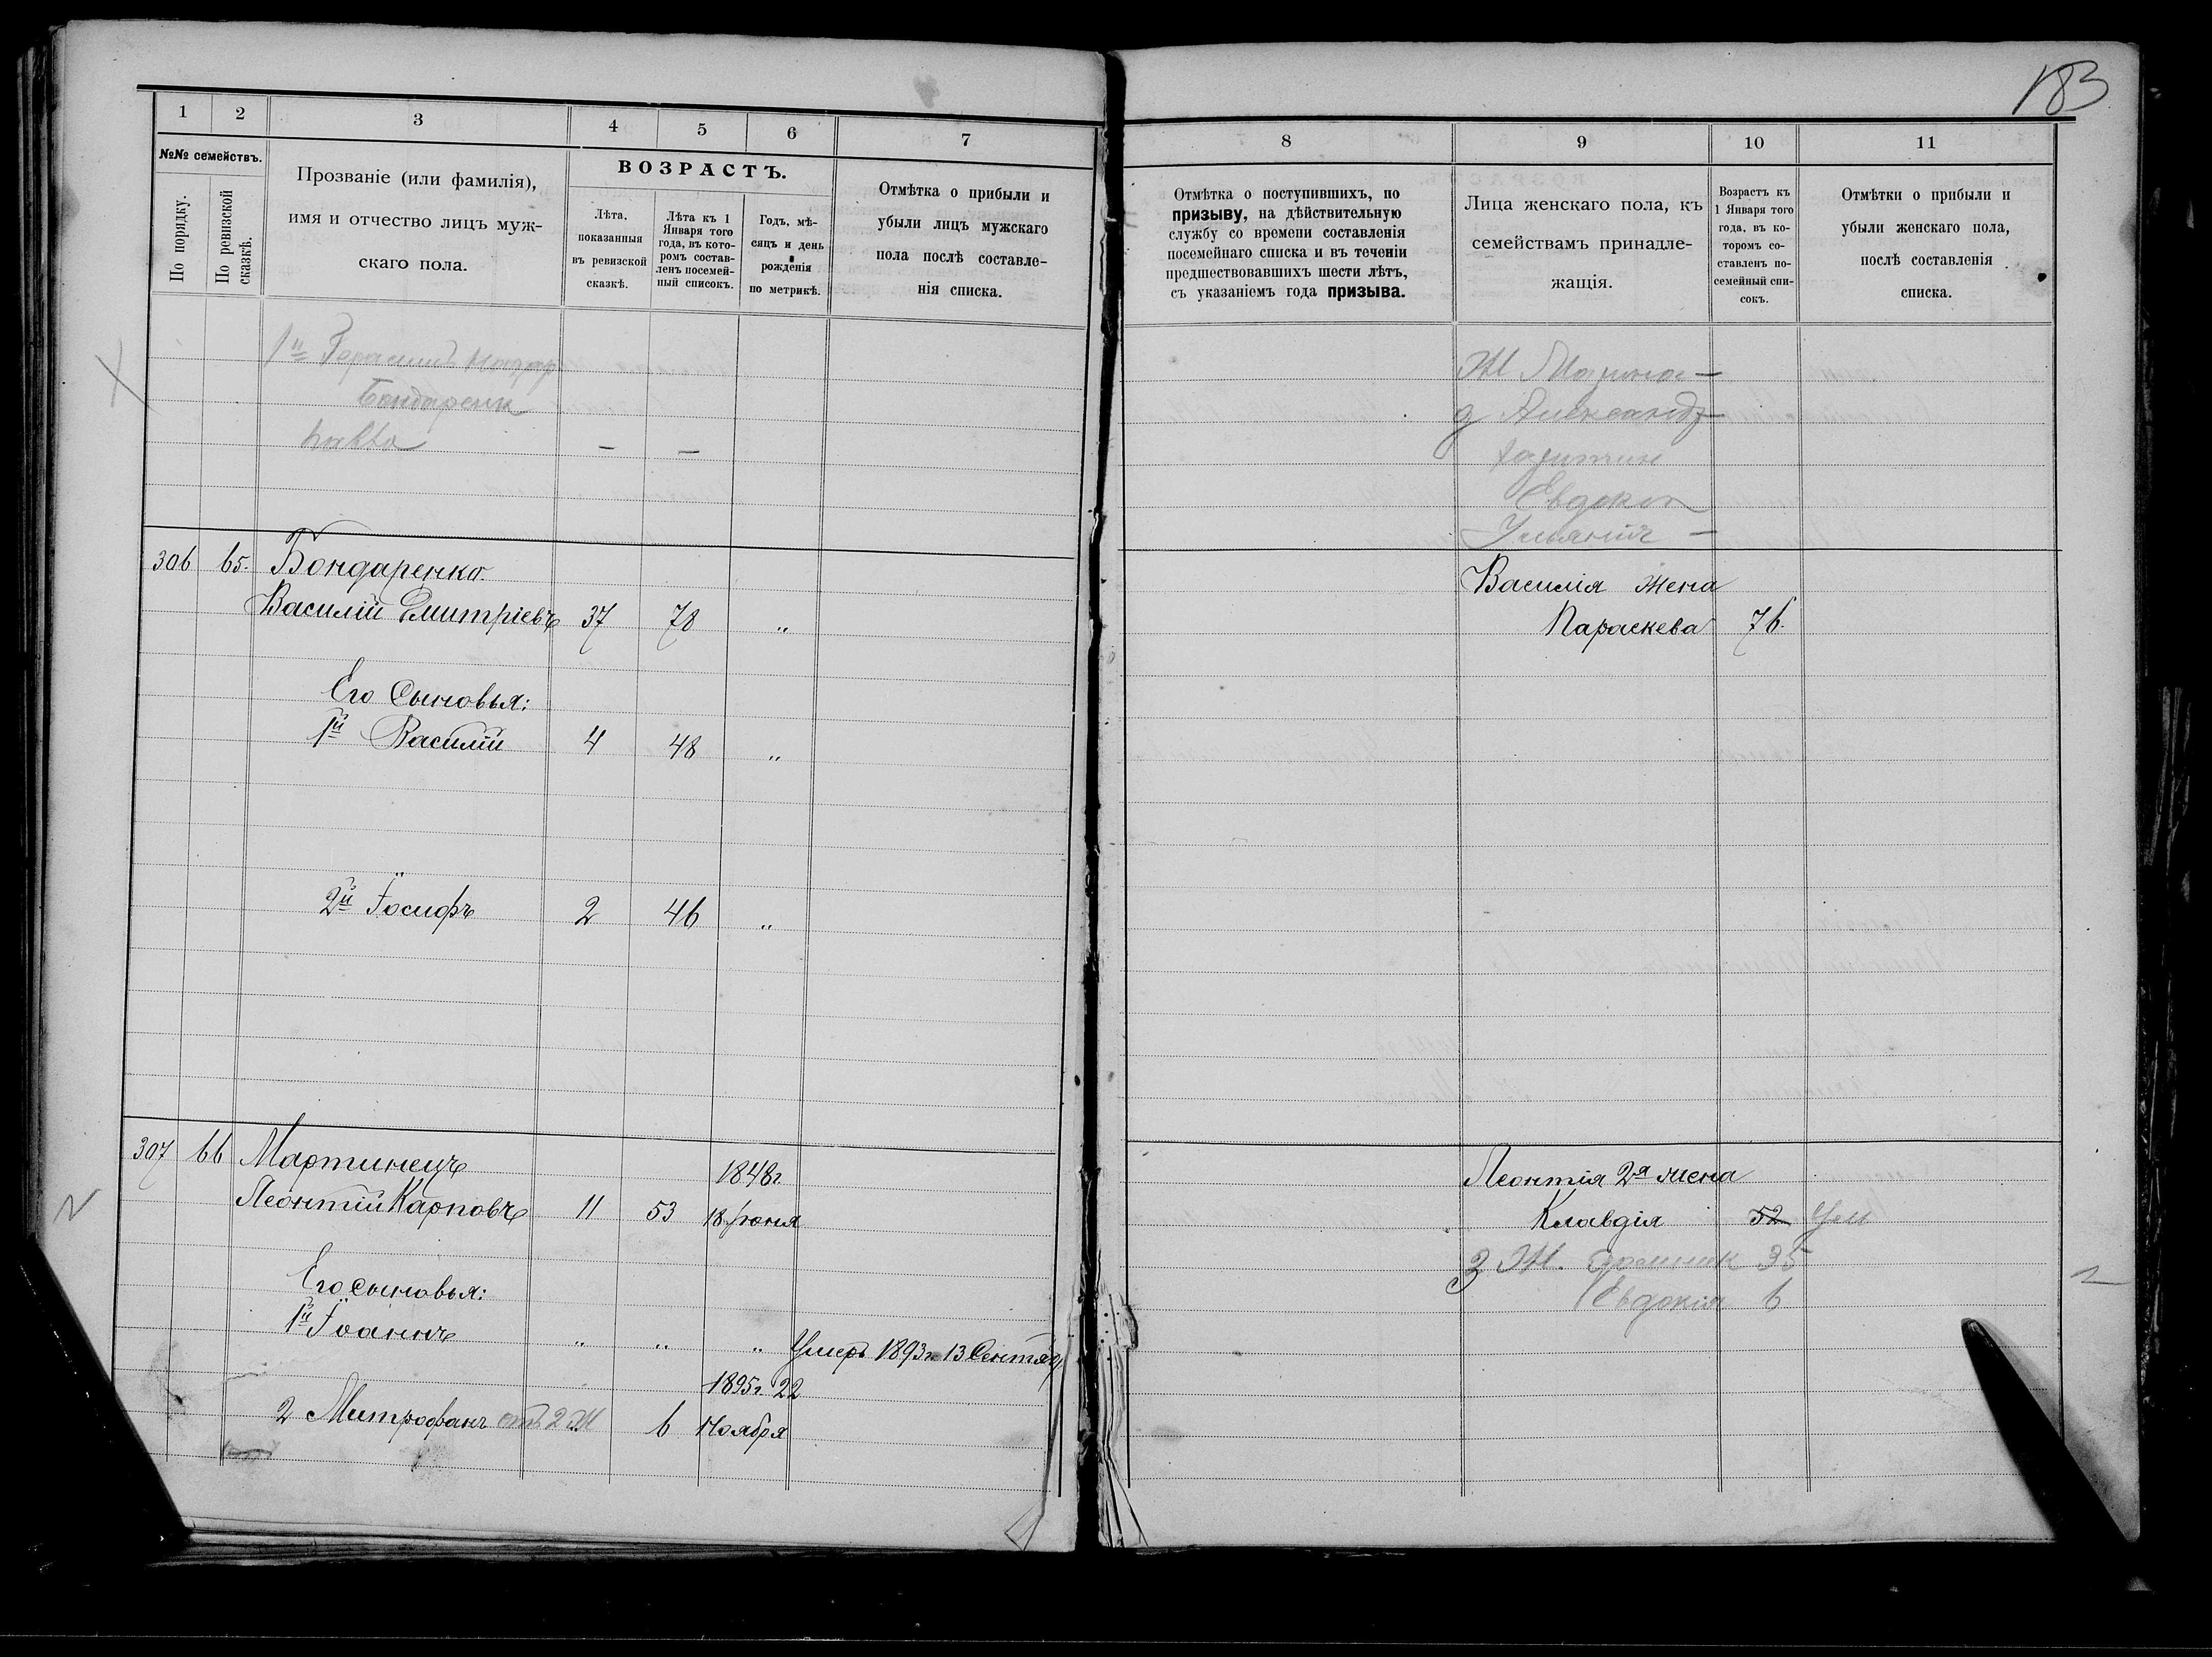 183
1 2 3 4 5 6 7
№№ семействъ.
По порядку.
По ревизской сказкѣ.
Прозваніе (или фамилія),
имя и отчество лицъ муж-
скаго пола.
ВОЗРАСТЪ.
Лѣта,
показанныя
въ ревизской
сказкѣ.
Лѣта къ 1
Января того
года, въ кото-
ромъ состав-
ленъ посемей-
ный списокъ.
Годъ, мѣ-
сяцъ и день
рожденія
по метрикѣ.
Отмѣтка о прибыли и
убыли лицъ мужскаго
пола послѣ составле-
нія списка.
8 9 10 11
Отмѣтка о поступившихъ, по
призыву, на дѣйствительную
службу со времени составленія
посемейнаго списка и въ теченіи
предшествовавшихъ шести лѣтъ,
съ указаніемъ года призыва.
Лица женскаго пола, къ
семействамъ принадле-
жащія.
Возрастъ къ
1 Января того
года, въ ко-
торомъ со-
ставленъ по-
семейный спи-
сокъ.
Отмѣтки о прибыли и
убыли женскаго пола,
послѣ составленія
списка.
1й Герасимъ
Бондаренк
— —
Ж Марина —
д Александр
Харитин
Евдокія
Ульянія —
306 65. Бондаренко.
Василій Дмитріевъ 37 78 „
Его Сыновья:
1й Василій 4 48 „
2й Іосифъ 2 46 „
Василія жена
Параскева 76.
307 66 Мартинецъ 1848г.
Леонтій Карповъ 11 53 18 Іюня
Его сыновья:
1й Іоаннъ „ „ „ Умеръ 1893г. 13 Сентяб.
1895г. 22
2 Митрофанъ отъ 2 Ж 6 Ноября
Леонтія 2я жена
Клавдія 52 Ум
3 Ж. Домник 35
Евдокія 6